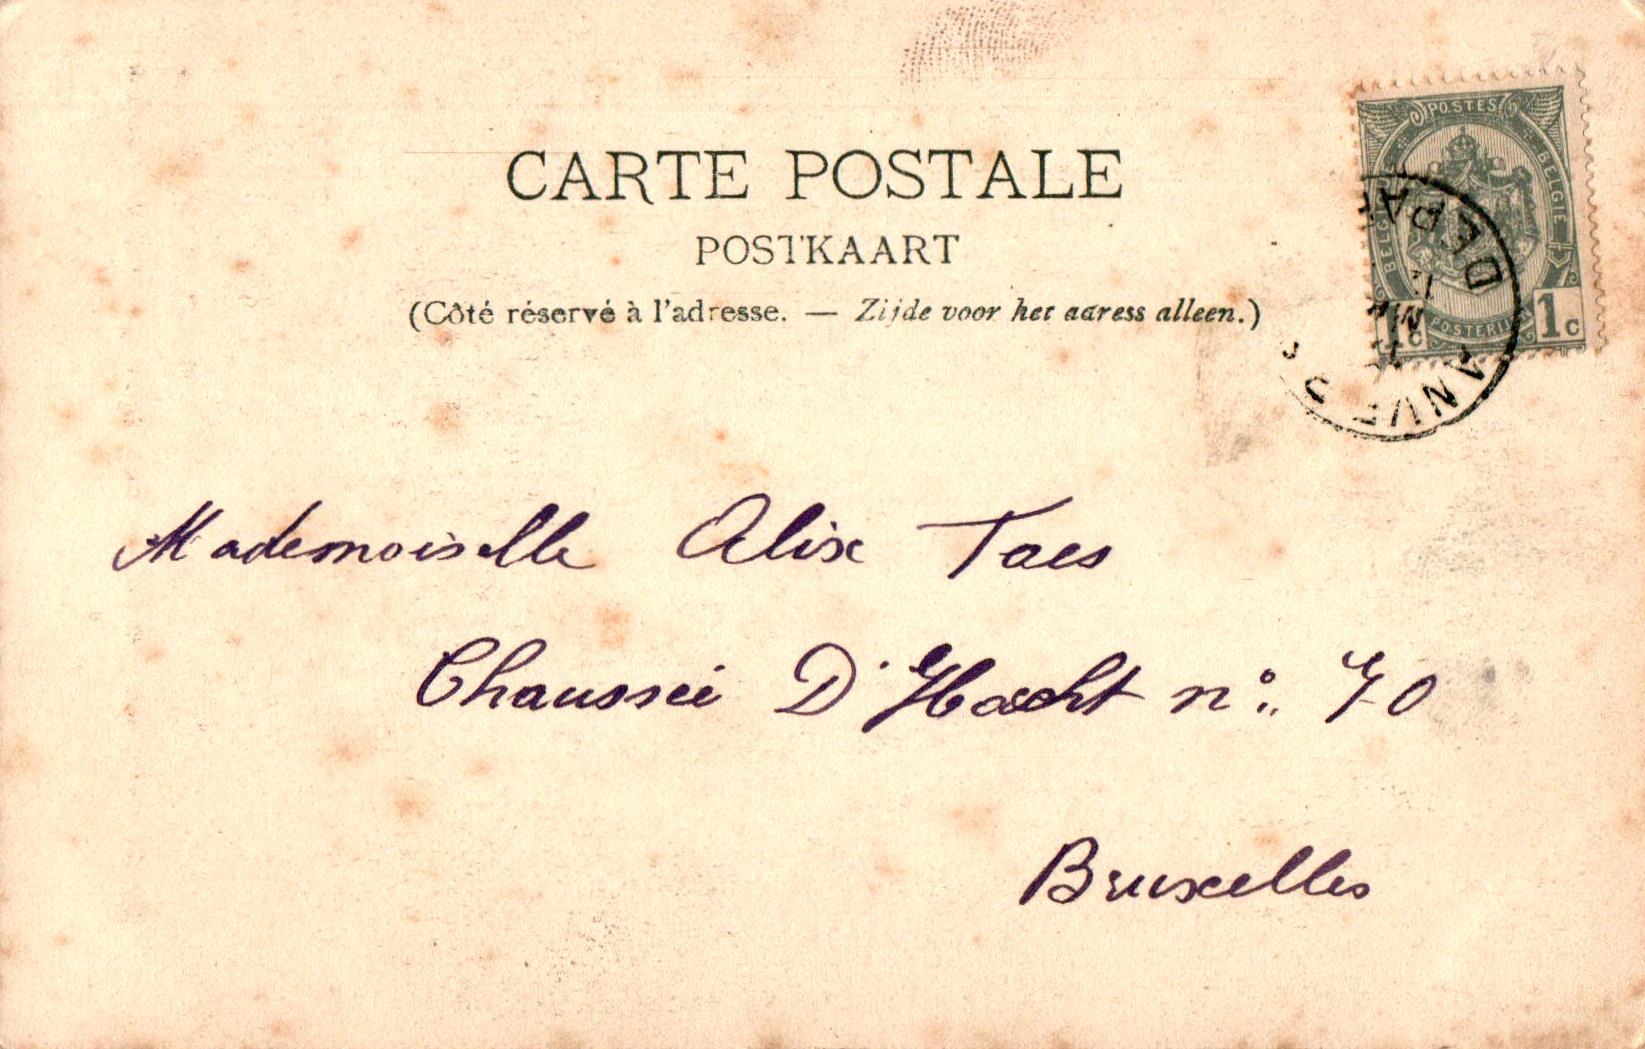 CARTE POSTALE
POSTKAART
(Côté réservé à l'adresse. — Zijde voor het adress alleen.)
POSTES
BELGIE
BELGI
POSTERIJEN
1c 1c
DEPA
ANVE
Mademoiselle Alix Taes
Chaussée D'Hacht n° 70
Bruxelles